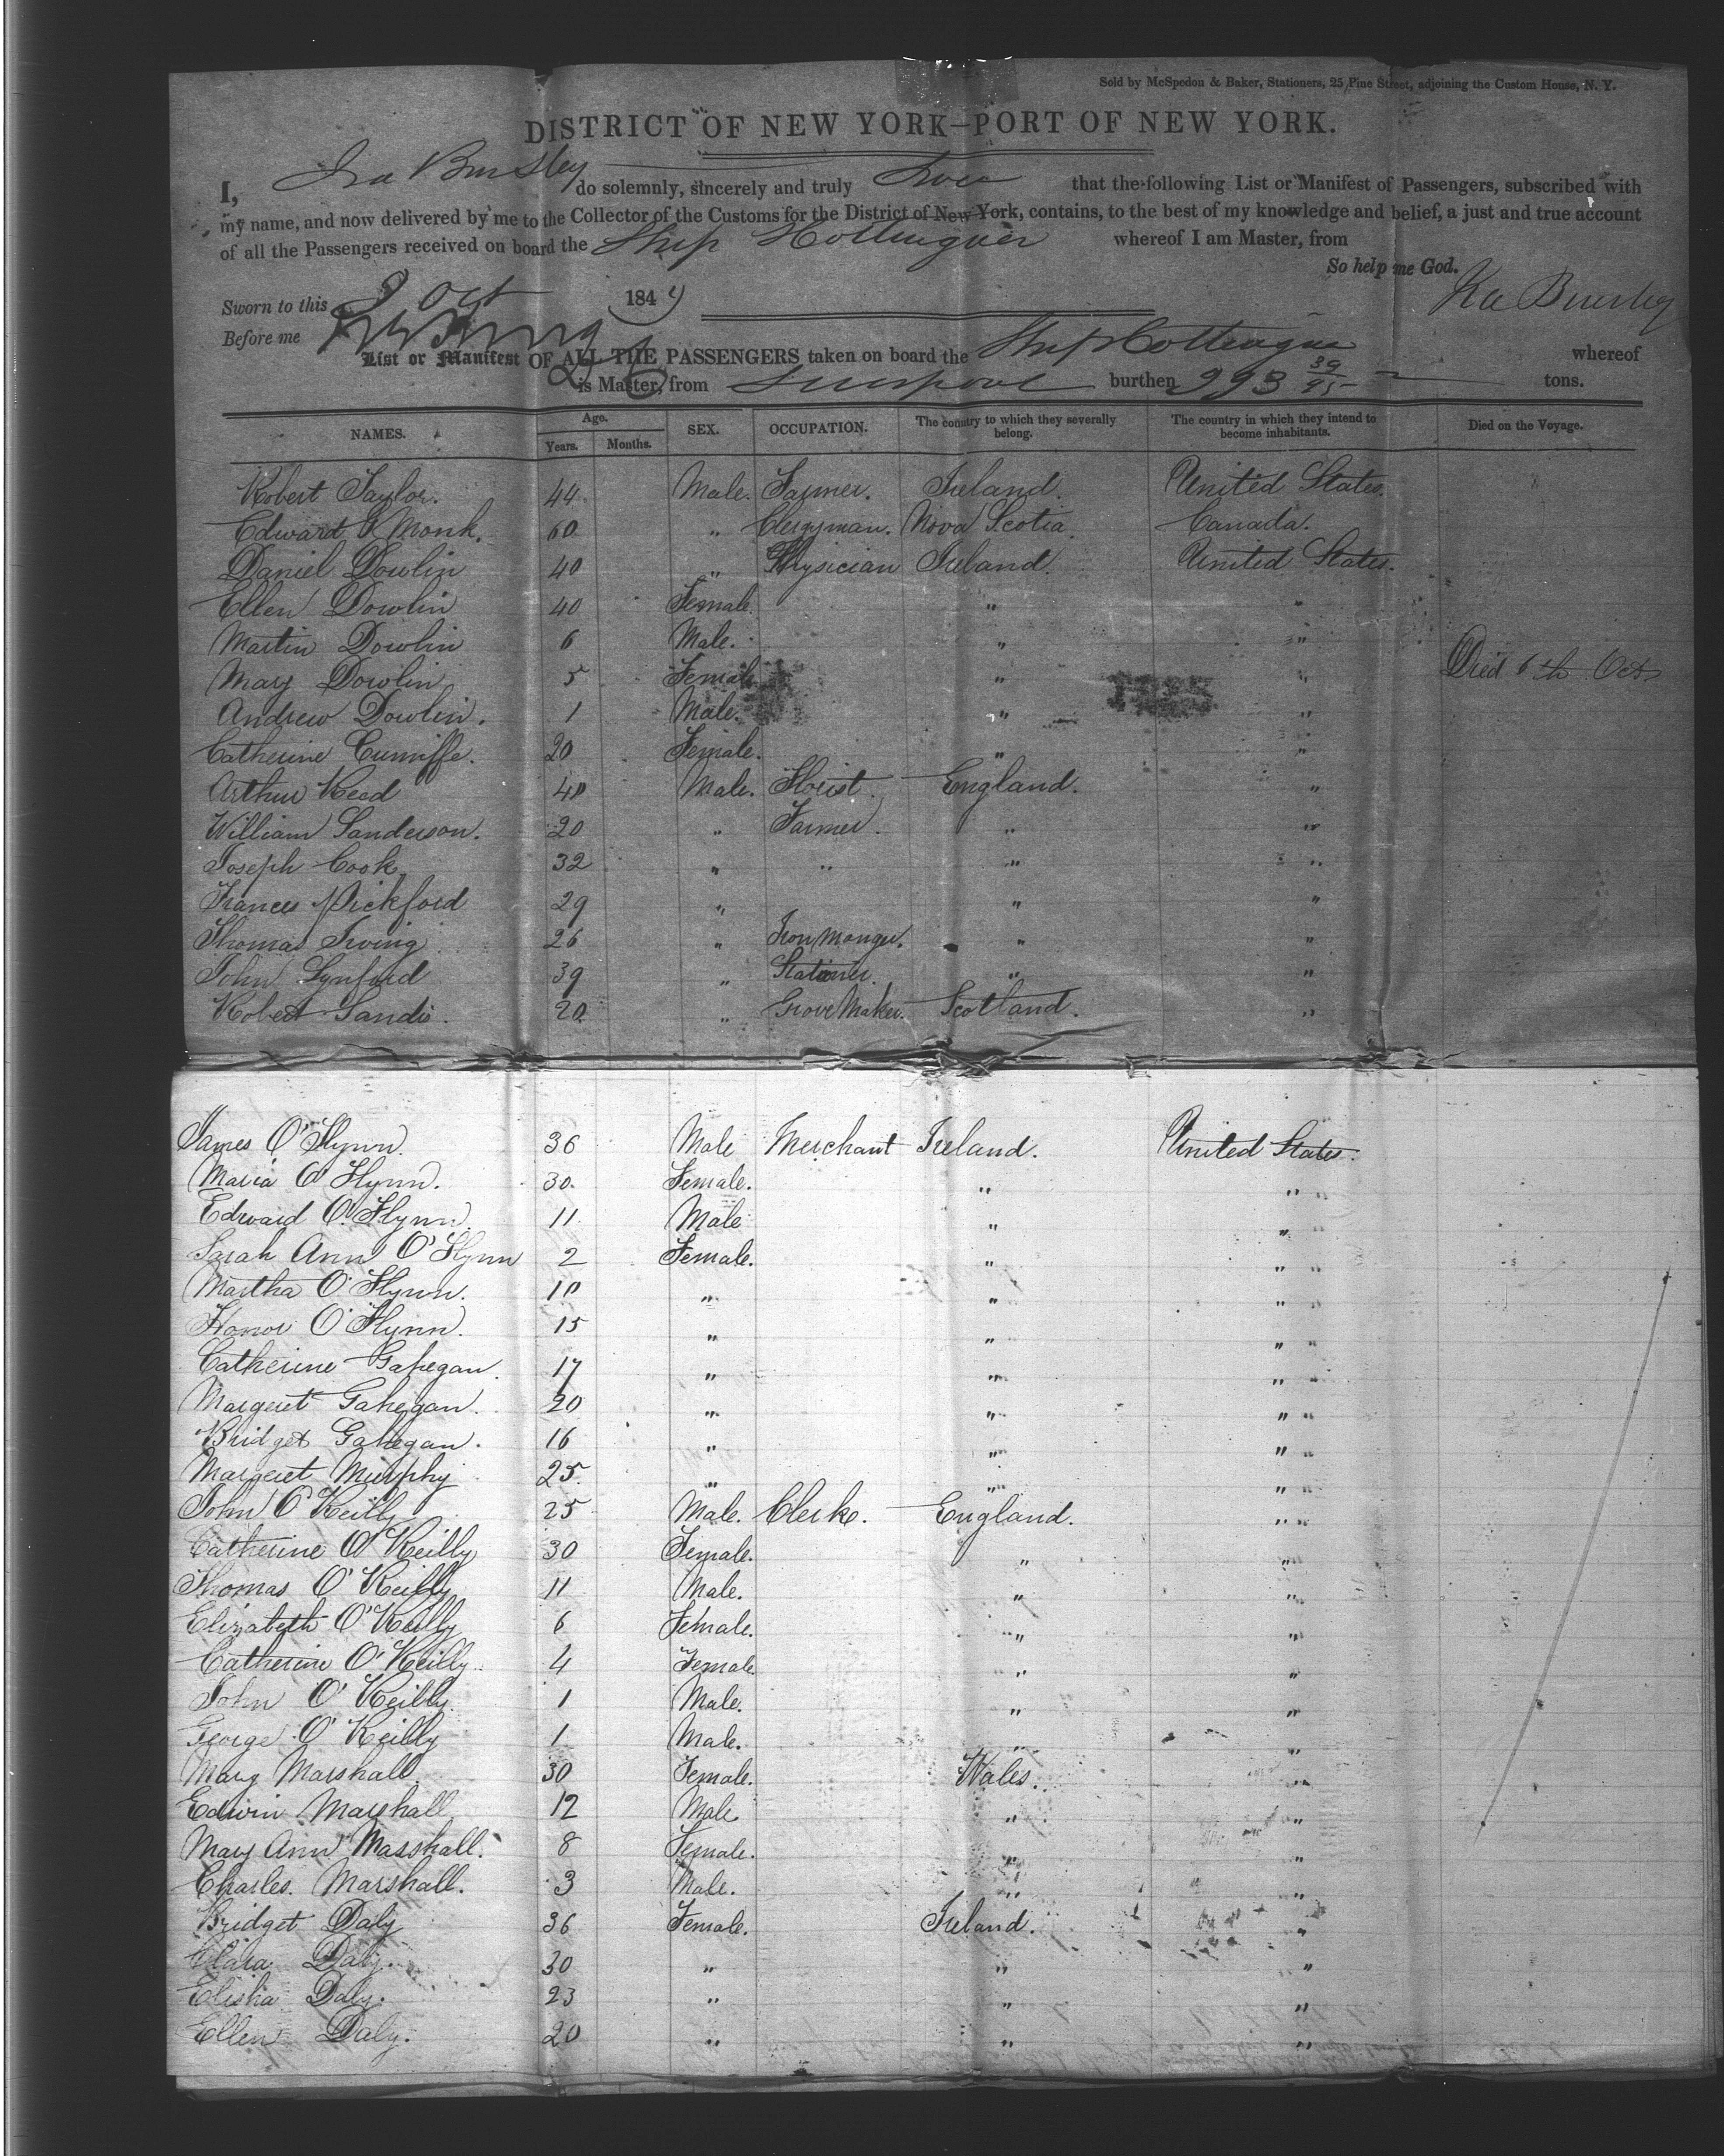 Sold by McSpedon & Baker, Stationers, 25 Pine Street, adjoining the Custom House, N. Y.
DISTRICT OF NEW YORK—PORT OF NEW YORK.
I, Ira Bursley do solemnly, sincerely and truly that the following List or Manifest of Passengers, subscribed with
my name, and now delivered by me to the Collector of the Customs for the District of New York, contains, to the best of my knowledge and belief, a just and true account
of all the Passengers received on board the Ship Hottinguer whereof I am Master, from
So help me God.
Sworn to this Oct 184 Ira Bursley
Before me
List or Manifest OF ALL THE PASSENGERS taken on board the Ship Hottinguer whereof
is Master, from Liverpool burthen 993 39/95 tons.
NAMES. Age. Years. Months. SEX. OCCUPATION. The country to which they severally belong. The country in which they intend to become inhabitants. Died on the Voyage.
Robert Taylor. 44 Male. Farmer. Ireland. United States.
Edward Monk. 60 " Clergyman. Nova Scotia. Canada.
Daniel Dowlin 40 " Physician Ireland. United States.
Ellen Dowlin 40 Female. " "
Martin Dowlin 6 Male. " "
Mary Dowlin 5 Female " " Died 6th Oct
Andrew Dowlin. 1 Male. " "
Catherine Cunniffe. 20 Female. " "
Arthur Read 40 Male. Florist. England. "
William Sanderson. 20 " Farmer. " "
Joseph Cook. 32 " " " "
Frances Pickford 29 " " "
Thomas Irving 26 " Iron Monger. " "
John Lynford 39 " Stationer. " "
Robert Sandis. 20 " Grove Maker. Scotland. "
James O'Flynn. 36 Male Merchant Ireland. United States.
Maria O'Flynn. 30. Female. " " "
Edward O'Flynn. 11 Male " " "
Sarah Ann O'Flynn 2 Female. " " "
Martha O'Flynn. 10 " " " "
Honor O'Flynn. 15 " " " "
Catherine Gahegan. 17 " " " "
Margeret Gahegan. 20 " " " "
Bridget Gahegan. 16 " " " "
Margeret Murphy 25 " " " "
John O'Reilly 25 Male. Clerk. England. " "
Catherine O'Reilly 30 Female. " "
Thomas O'Reilly 11 Male. " "
Elizabeth O'Reilly 6 Female. " "
Catherine O'Reilly. 4 Female. " "
John O'Reilly. 1 Male. " "
George O'Reilly 1 Male. " "
Mary Marshall. 30 Female. Wales. "
Edwin Marshall 12 Male " "
Mary Ann Marshall. 8 Female. " "
Charles. Marshall. 3 Male. " "
Bridget Daly 36 Female. Ireland. "
Clara Daly. 30 " " "
Elisha Daly. 23 " " "
Ellen Daly. 20 " " "